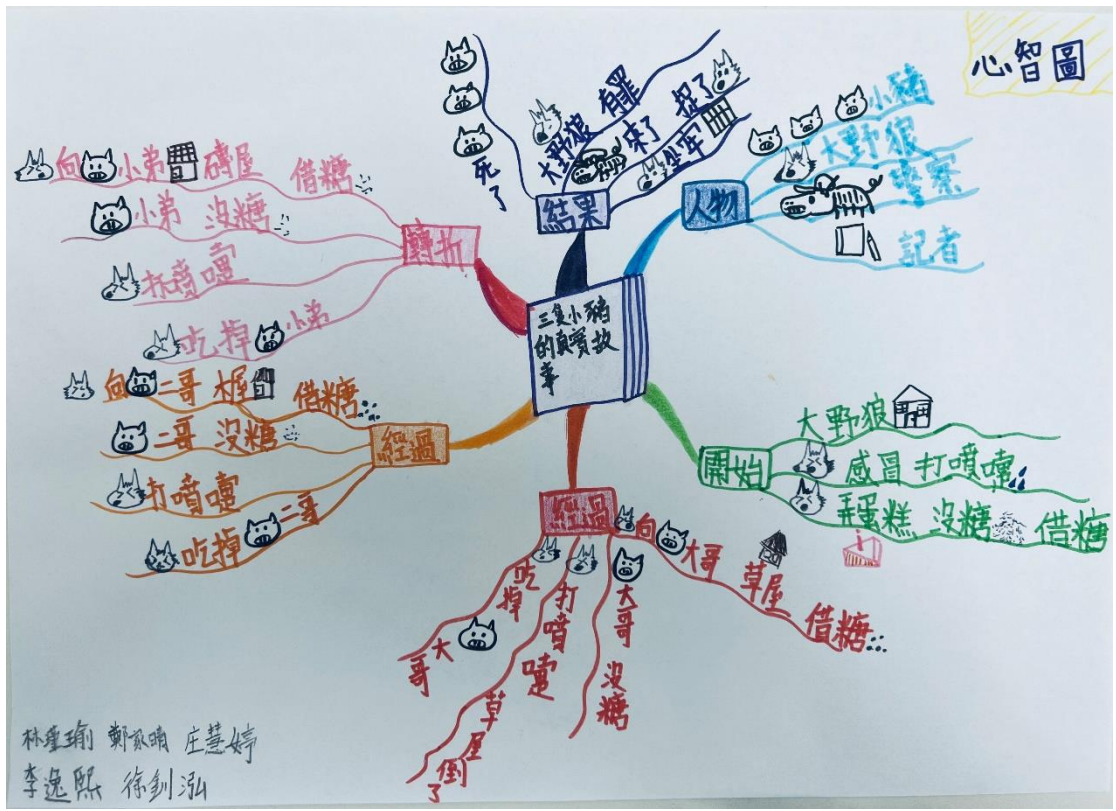 心智圖
三隻小豬
的真實故
事
人物
小豬
大野狼
警察
記者
開始
大野狼
感冒 打噴嚏
弄蛋糕 沒糖 借糖
經過
向 大哥 草屋 借糖
大哥 沒糖
打噴嚏 草屋倒了
吃掉 大哥
經過
向 二哥 木屋 借糖
二哥 沒糖
打噴嚏
吃掉 二哥
轉折
向 小弟 磚屋 借糖
小弟 沒糖
打噴嚏
吃掉 小弟
結果
死了
大野狼 有罪
來了 捉了
坐牢
庄慧婷
李逸熙 徐釗泓